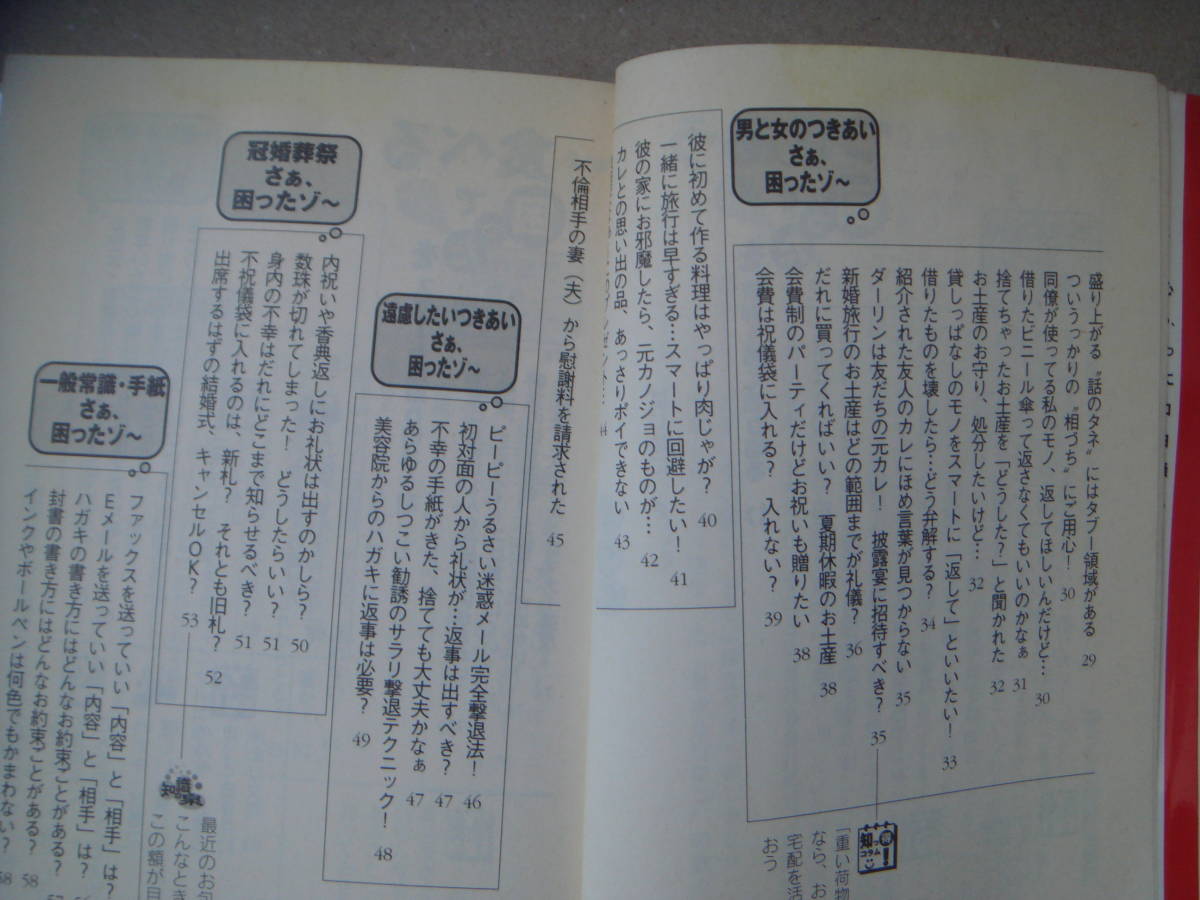 盛り上がる〝話のタネ〟にはタブー領域がある 29
ついうっかりの〝相づち〟にご用心! 30
同僚が使ってる私のモノ、返してほしいんだけど… 30
借りたビニール傘って返さなくてもいいのかなぁ 31
捨てちゃったお土産を「どうした?」と聞かれた 32
お土産のお守り、処分したいけど… 32
貸しっぱなしのモノをスマートに「返して」といいたい! 33
借りたものを壊したら…どう弁解する? 34
紹介された友人のカレにほめ言葉が見つからない 35
ダーリンは友だちの元カレ! 披露宴に招待すべき? 35
新婚旅行のお土産はどの範囲までが礼儀? 36
だれに買ってくればいい? 夏期休暇のお土産 38
会費制のパーティだけどお祝いも贈りたい 38
会費は祝儀袋に入れる? 入れない? 39
知っ得!
コラム
「重い荷物
なら、お
宅配を活
おう
男と女のつきあい
さぁ、
困ったゾ〜
彼に初めて作る料理はやっぱり肉じゃが? 40
一緒に旅行は早すぎる…スマートに回避したい! 41
彼の家にお邪魔したら、元カノジョのものが… 42
カレとの思い出の品、あっさりポイできない 43
44
不倫相手の妻(夫)から慰謝料を請求された 45
遠慮したいつきあい
さぁ、
困ったゾ〜
ピーピーうるさい迷惑メール完全撃退法! 46
初対面の人から礼状が…返事は出すべき? 47
不幸の手紙がきた、捨てても大丈夫かなぁ 47
あらゆるしつこい勧誘のサラリ撃退テクニック! 48
美容院からのハガキに返事は必要? 49
冠婚葬祭
さぁ、
困ったゾ〜
内祝いや香典返しにお礼状は出すのかしら? 50
数珠が切れてしまった! どうしたらいい? 51
身内の不幸はだれにどこまで知らせるべき? 51
不祝儀袋に入れるのは、新札? それとも旧札? 52
出席するはずの結婚式、キャンセルOK? 53
最近のお
こんなとき
この額が目
一般常識・手紙
さぁ、
困ったゾ〜
ファックスを送っていい「内容」と「相手」は?
Eメールを送っていい「内容」と「相手」は?
ハガキの書き方にはどんなお約束ことがある? 57
封書の書き方にはどんなお約束ことがある? 58
インクやボールペンは何色でもかまわない? 58